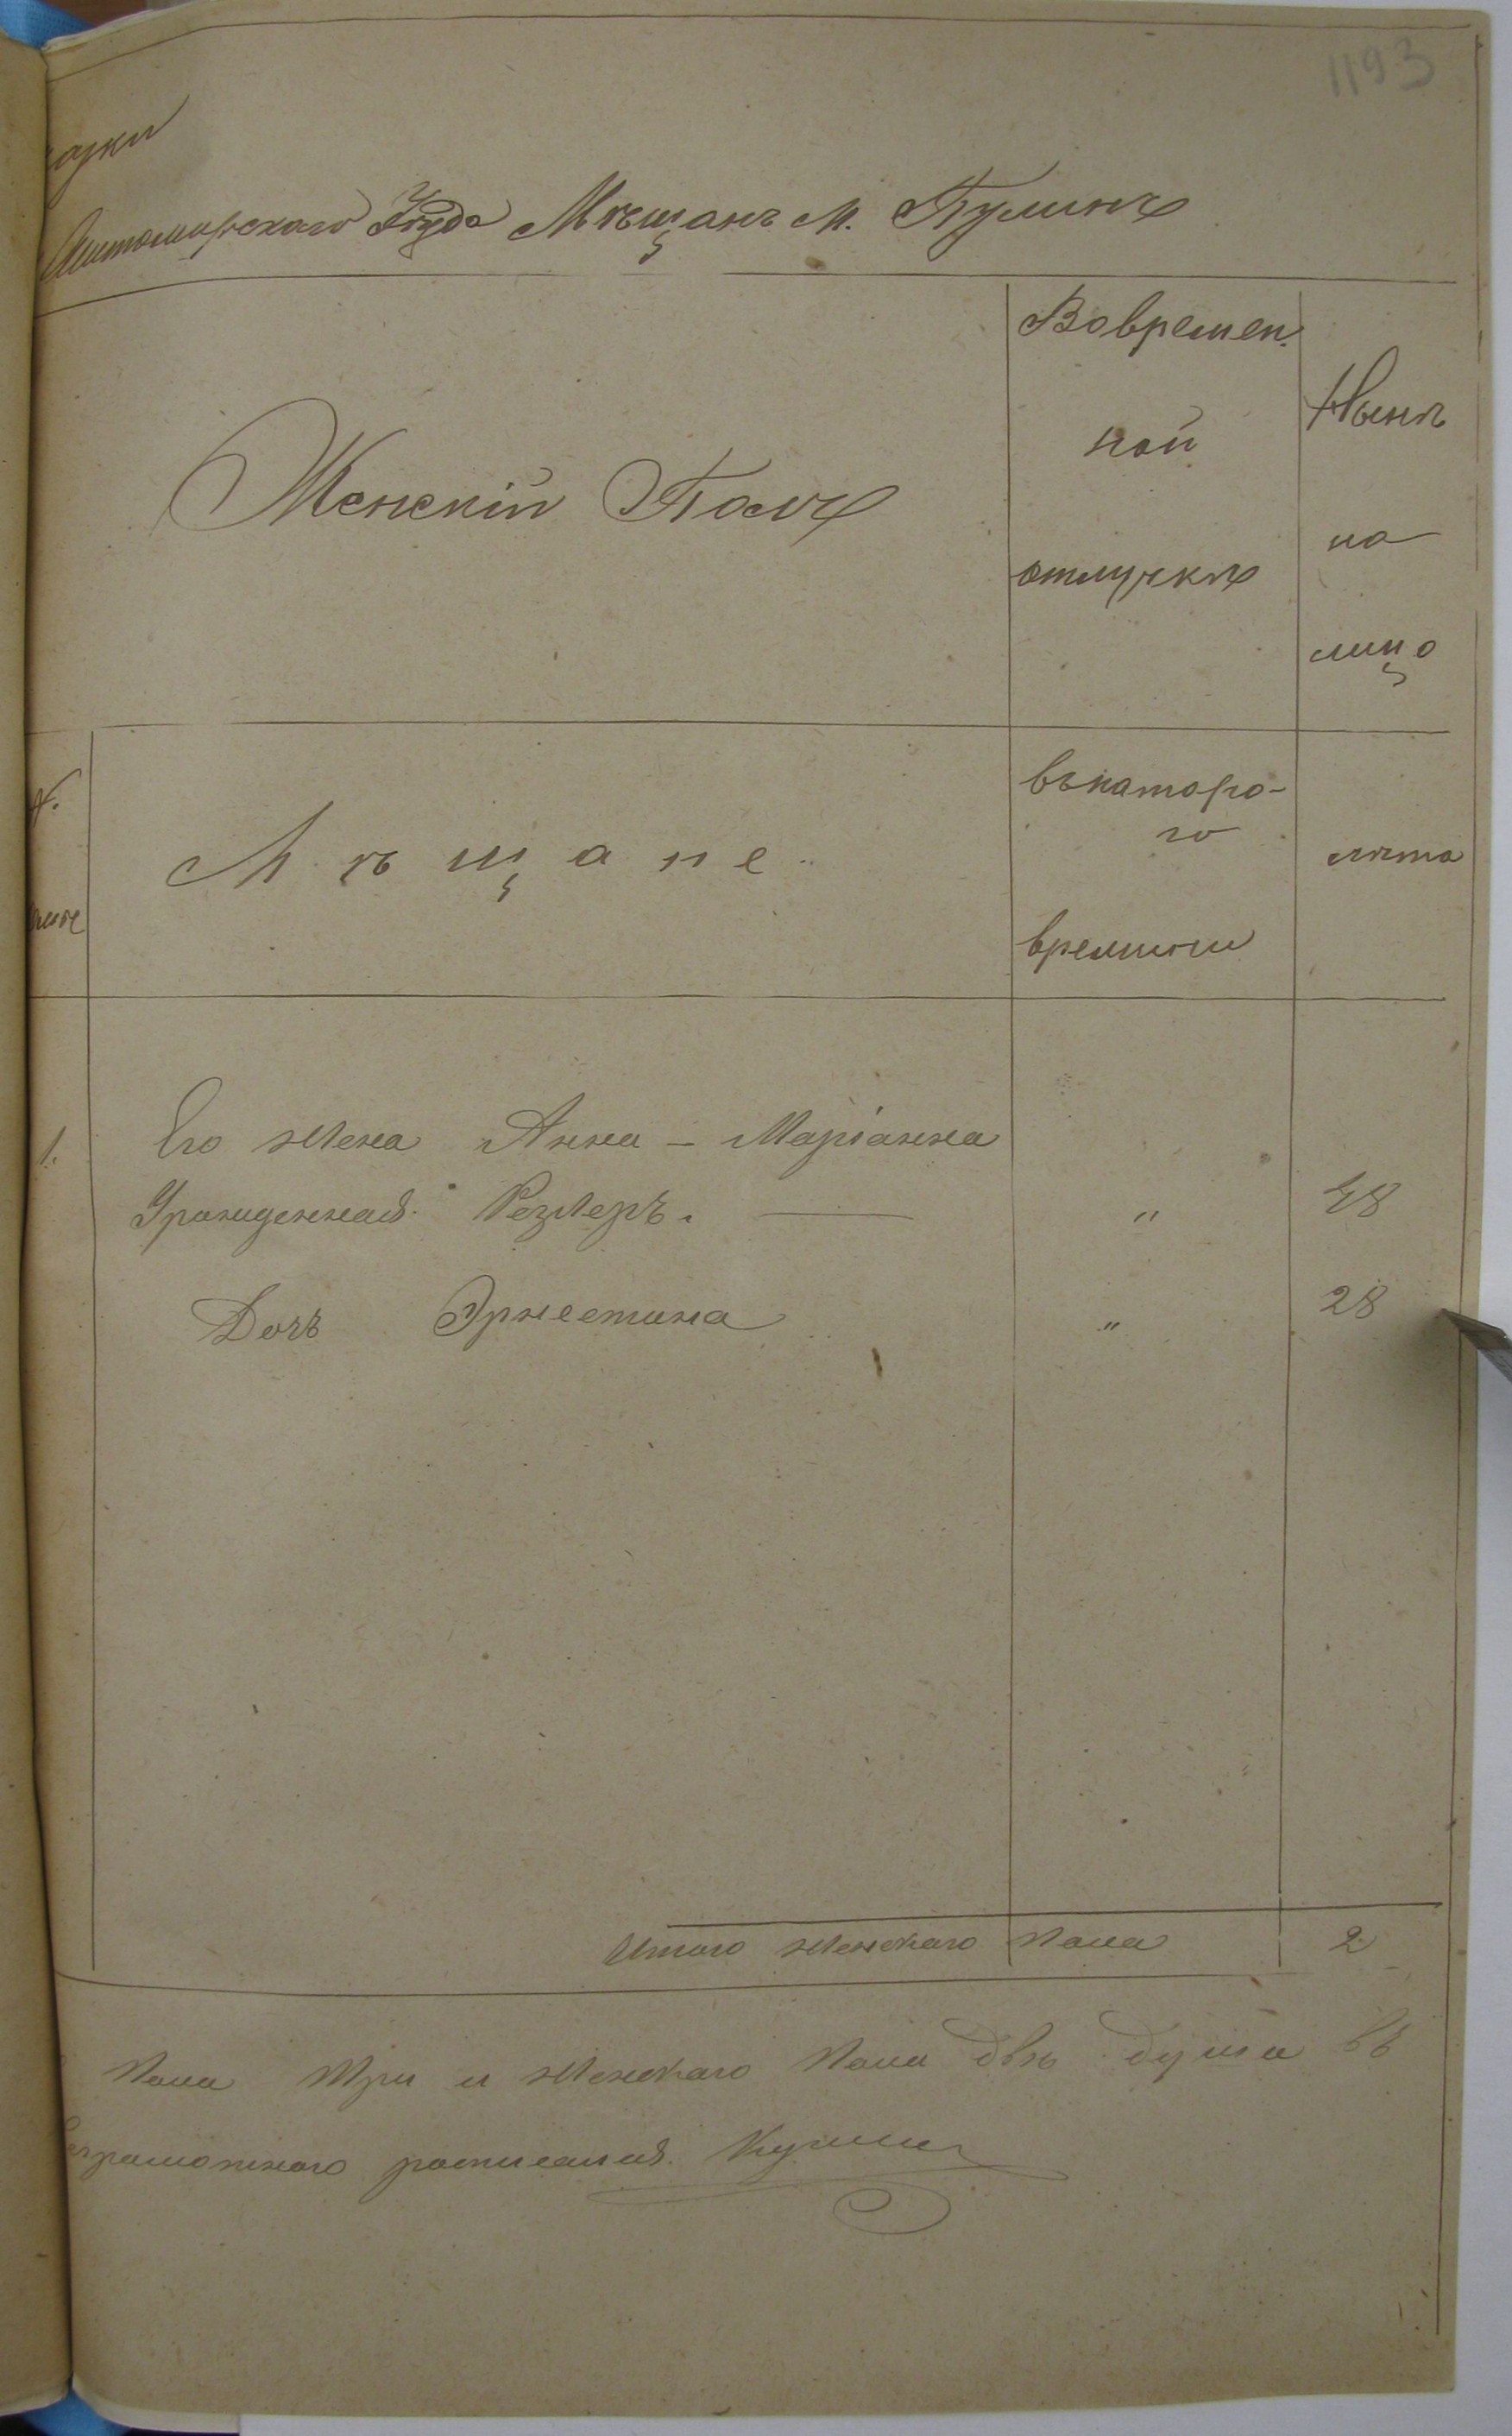 1193
азки
Житомирскаго Уѣзда Мѣщанъ М. Пулинъ
Женскій Полъ
Вовремен.
ной
отлучкѣ
Нынѣ
на
лицо
Мѣщане
съкаторо-
го
времѣни
лѣта
1. Его жена Анна - Маріанна
Урожденная Резлеръ. — " 48
Дочъ Эрнестина " 28
Итого женскаго пола 2
пола три и женскаго пола двѣ души въ
росписался.